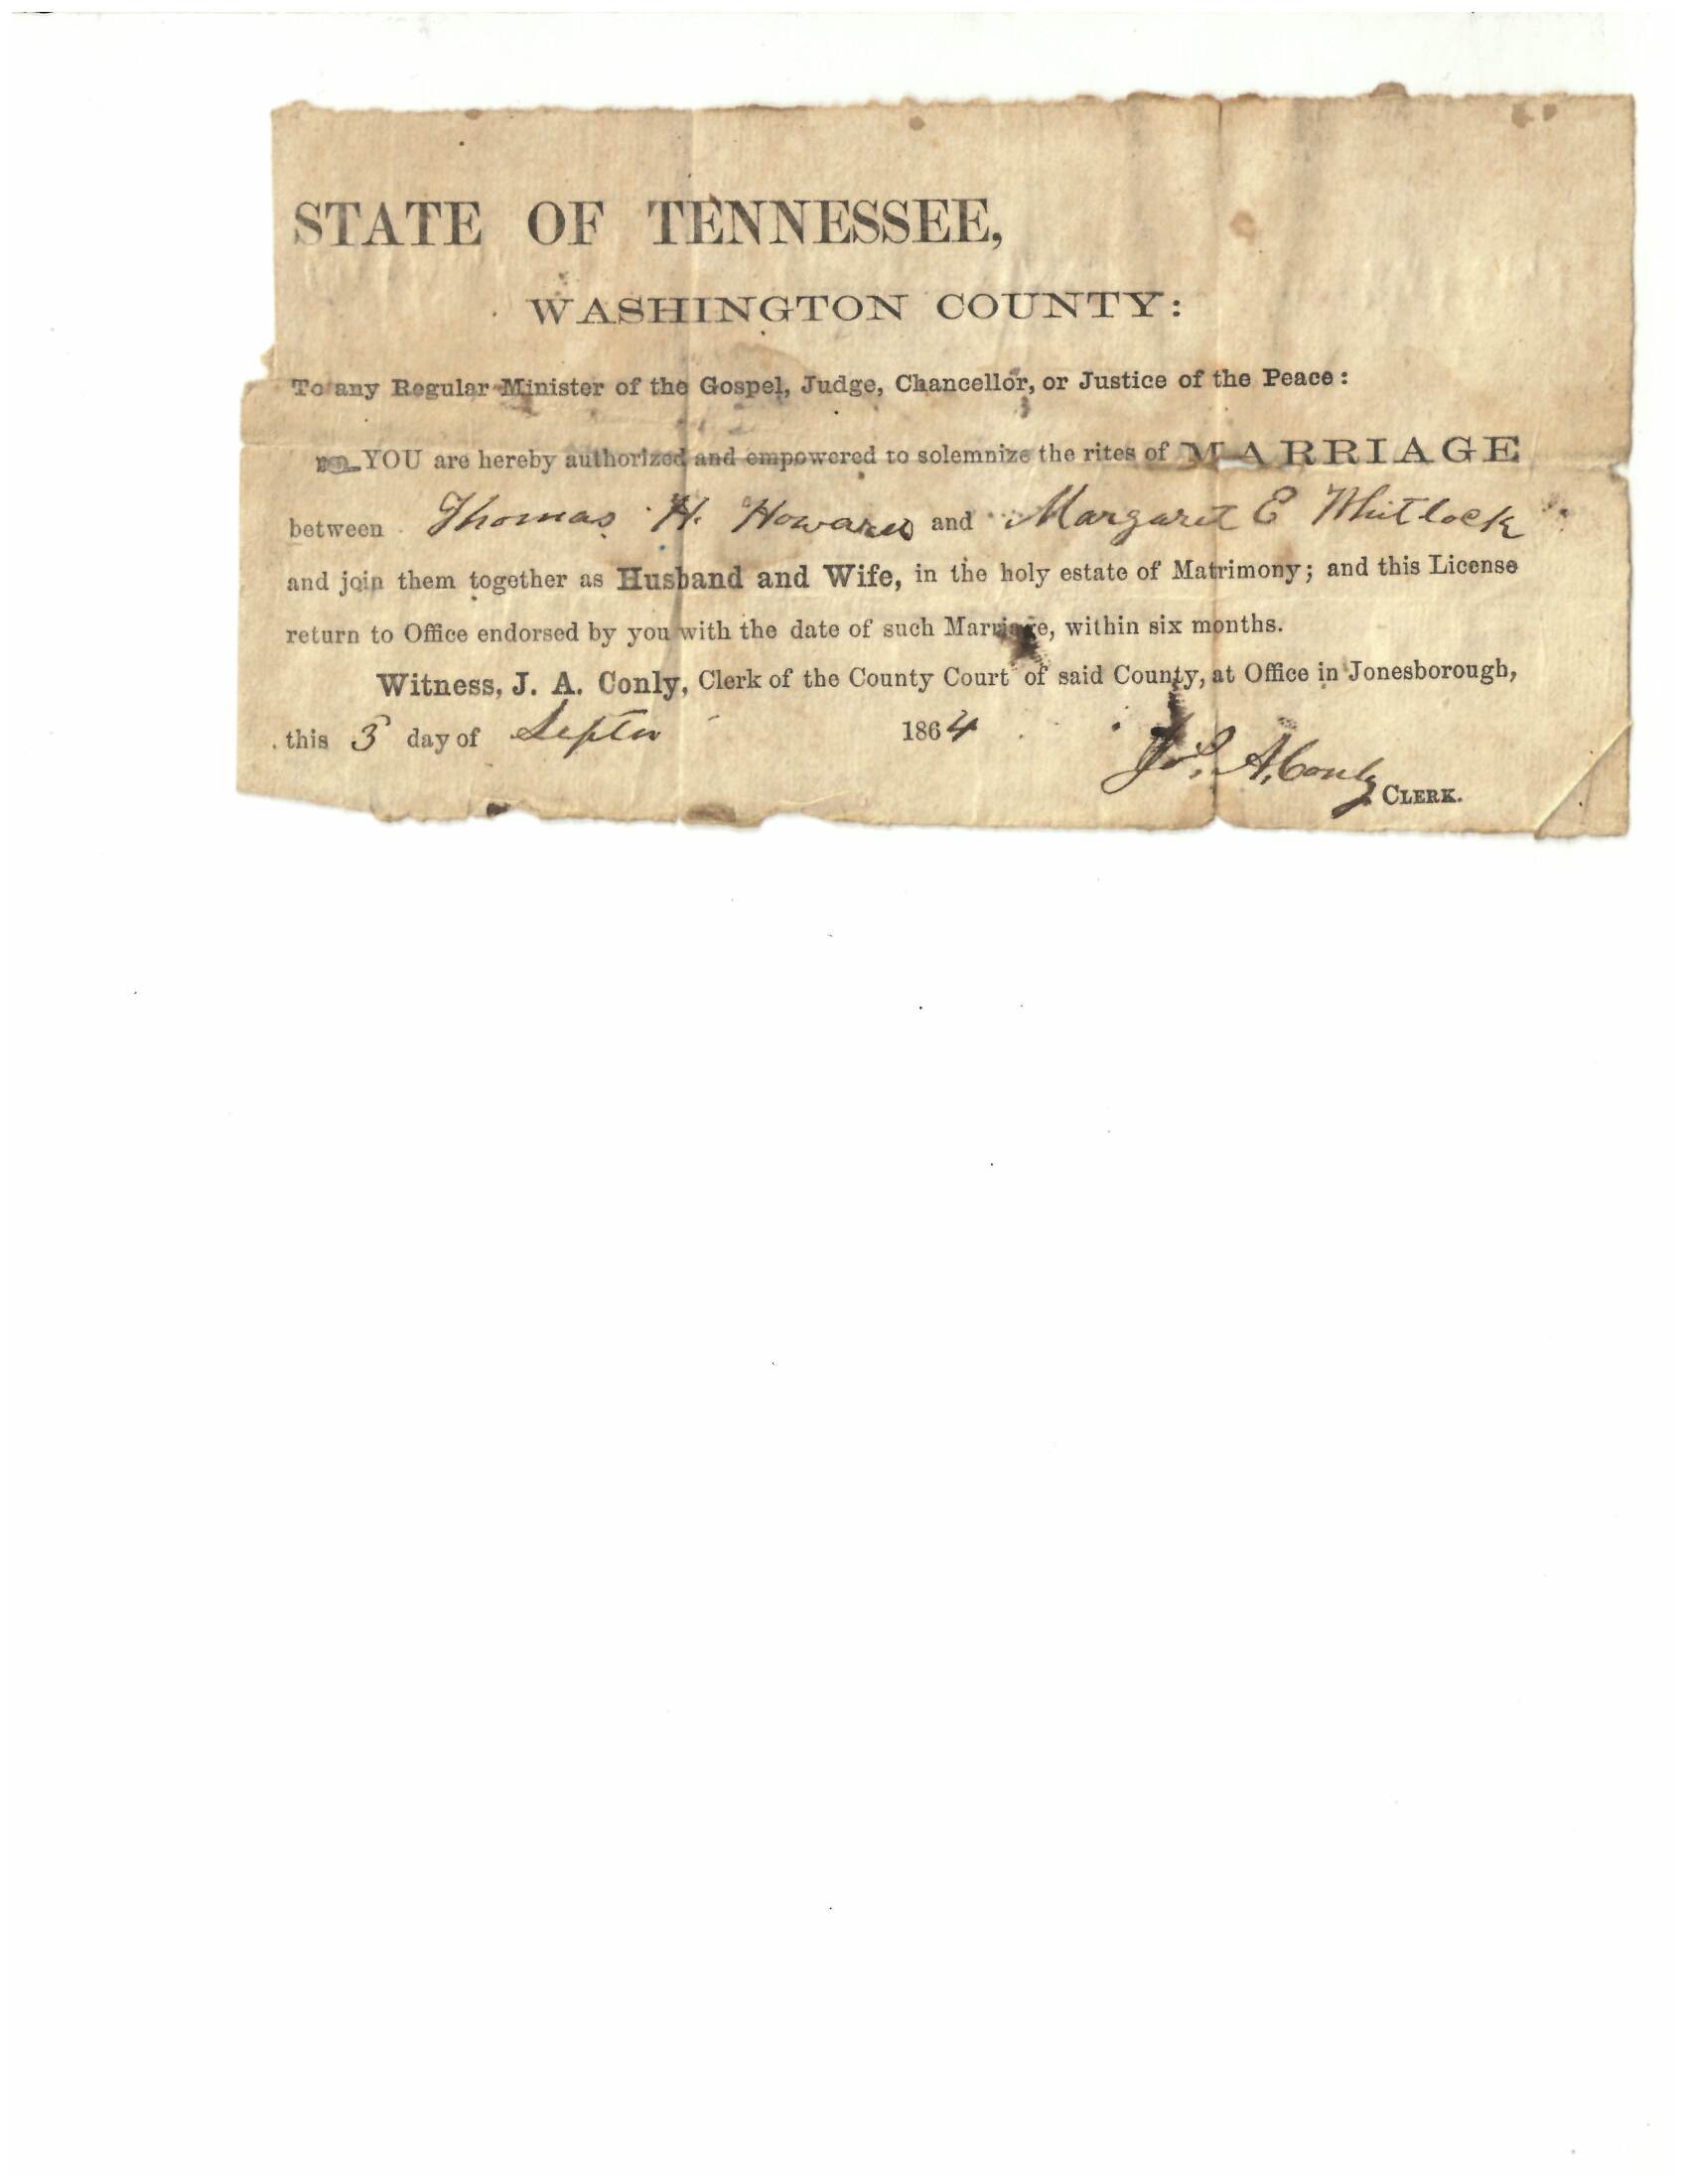 STATE OF TENNESSEE,
WASHINGTON COUNTY:
To any Regular Minister of the Gospel, Judge, Chancellor, or Justice of the Peace:
YOU are hereby authorized and empowered to solemnize the rites of MARRIAGE
between Thomas H. Howard and Margaret E Whitlock
and join them together as Husband and Wife, in the holy estate of Matrimony; and this License
return to Office endorsed by you with the date of such Marriage, within six months.
Witness, J. A. Conly, Clerk of the County Court of said County, at Office in Jonesborough,
this 3 day of Septr 1864
A. Conly CLERK.